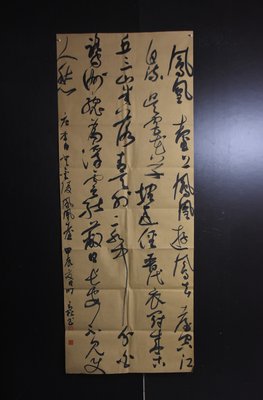 鳳凰臺上鳳凰遊鳳去臺空江
自流吳宮花草埋幽徑晉代衣冠成古
丘三山半落青天外二水中分白
鷺洲總為浮雲能蔽日長安不見使
人愁
右李白登金陵鳳凰臺 甲辰夏日 書